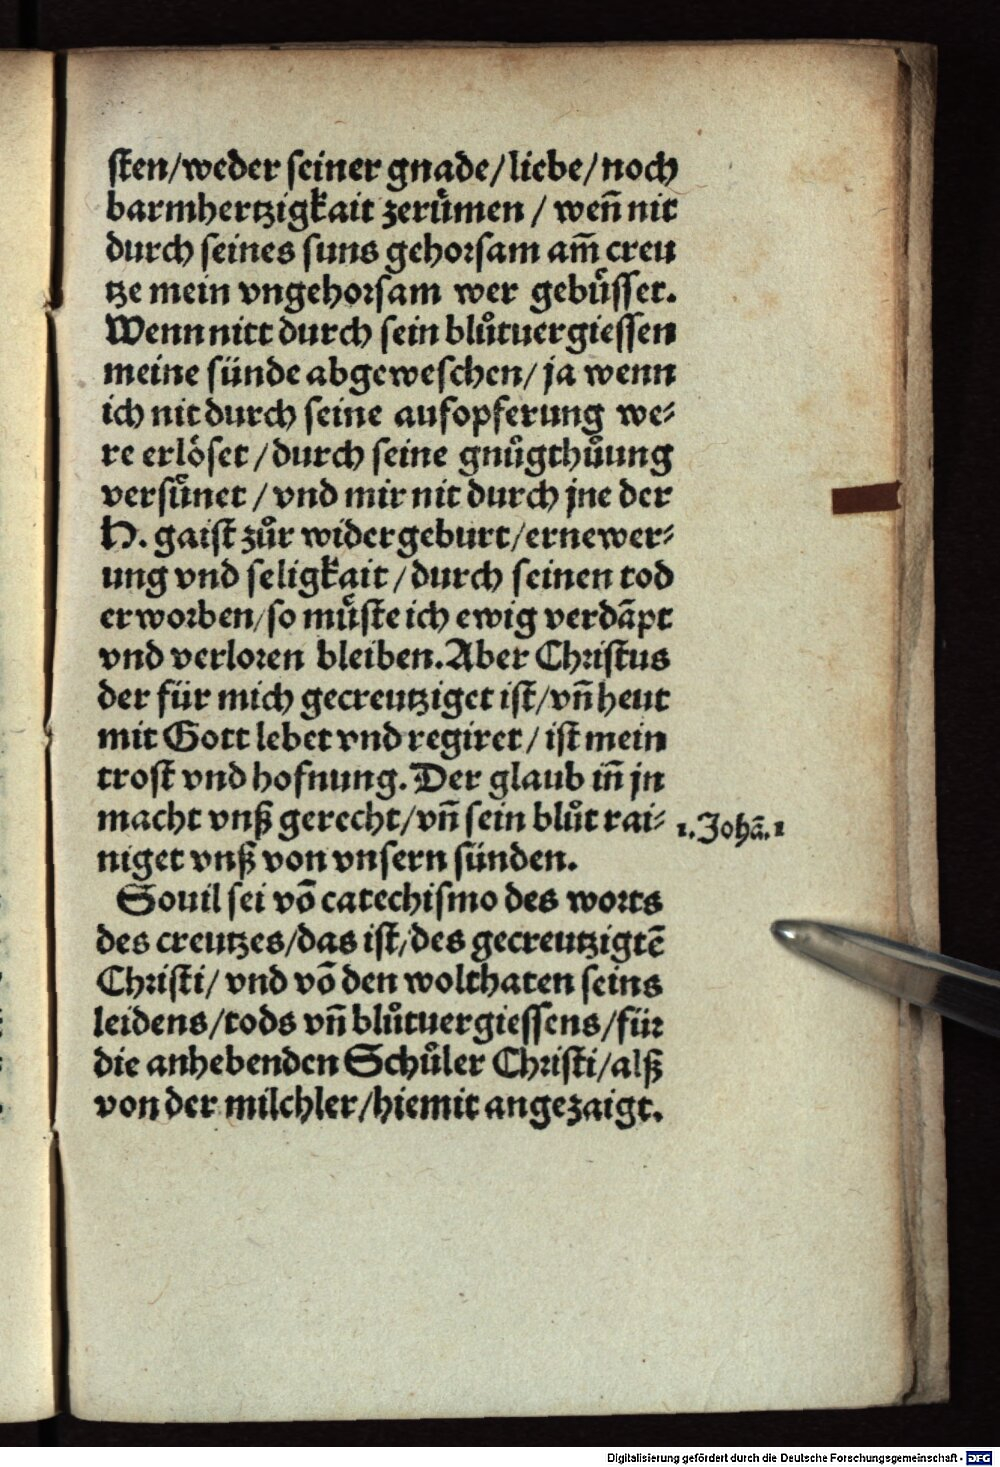 sten/weder seiner gnade/liebe/noch
barmhertzigkait zerůmen / weñ nit
durch seines suns gehorsam am̃ creu
tze mein vngehorsam wer gebuͤsset.
Wenn nitt durch sein blůtuergiessen
meine sünde abgeweschen/ ja wenn
ich nit durch seine aufopferung we⸗
re erlöset /durch seine gnůgthůung
versuͤnet / vnd mir nit durch jne der
H. gaist zůr widergeburt/ernewer⸗
ung vnd seligkait /durch seinen tod
erworben/so muͤste ich ewig verdãpt
vnd verloren bleiben. Aber Christus
der für mich gecreutziget ist/vñ heut
mit Gott lebet vnd regiret / ist mein
trost vnd hofnung. Der glaub iñ jn
macht vnß gerecht/vñ sein blůt rai⸗
1. Johã. 1
niget vnß von vnsern sünden.
Souil sei võ catechismo des worts
des creutzes/das ist/des gecreutzigtẽ
Christi/ vnd võ den wolthaten seins
leidens/tods vñ blůtuergiessens/für
die anhebenden Schůler Christi/alß
von der milchler/hiemit angezaigt.
Digitalisierung gefördert durch die Deutsche Forschungsgemeinschaft - DFG